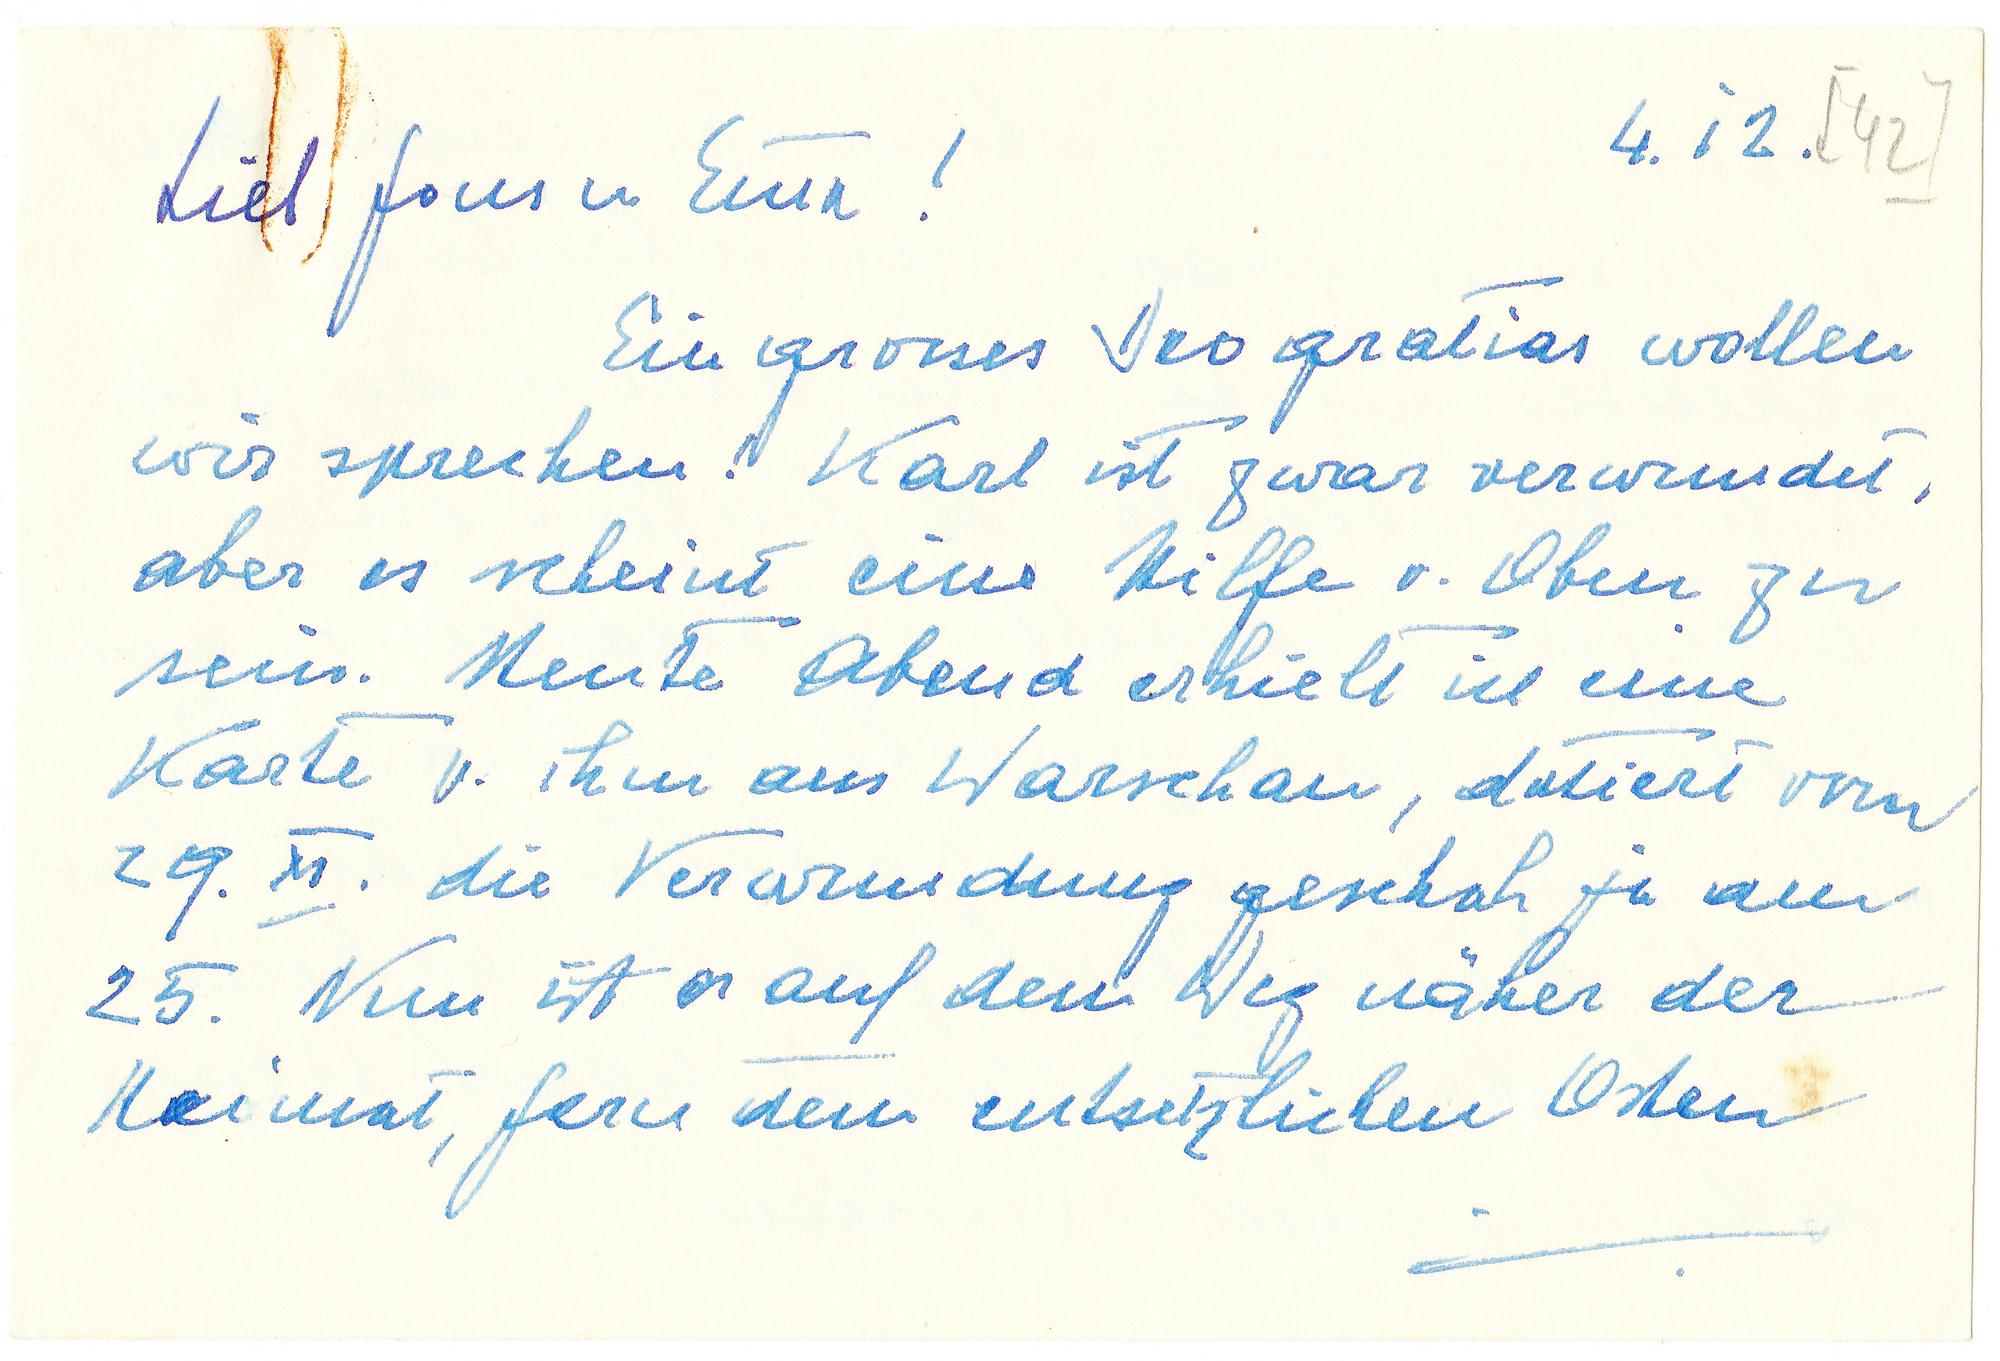 4.12. [42]
Lieb fons u Emma !
Ein grosses Deo gratias wollen
wir sprechen! Karl ist zwar verwundet,
aber es scheint eine Hilfe v. Oben zu
sein. Heute Abend erhielt ich eine
Karte v. ihm aus Warschau, datiert vom
29. XI. die Verwundung geschah ja am
25. Nun ist er auf dem Weg näher der
Heimat, fern dem entsetzlichen Osten